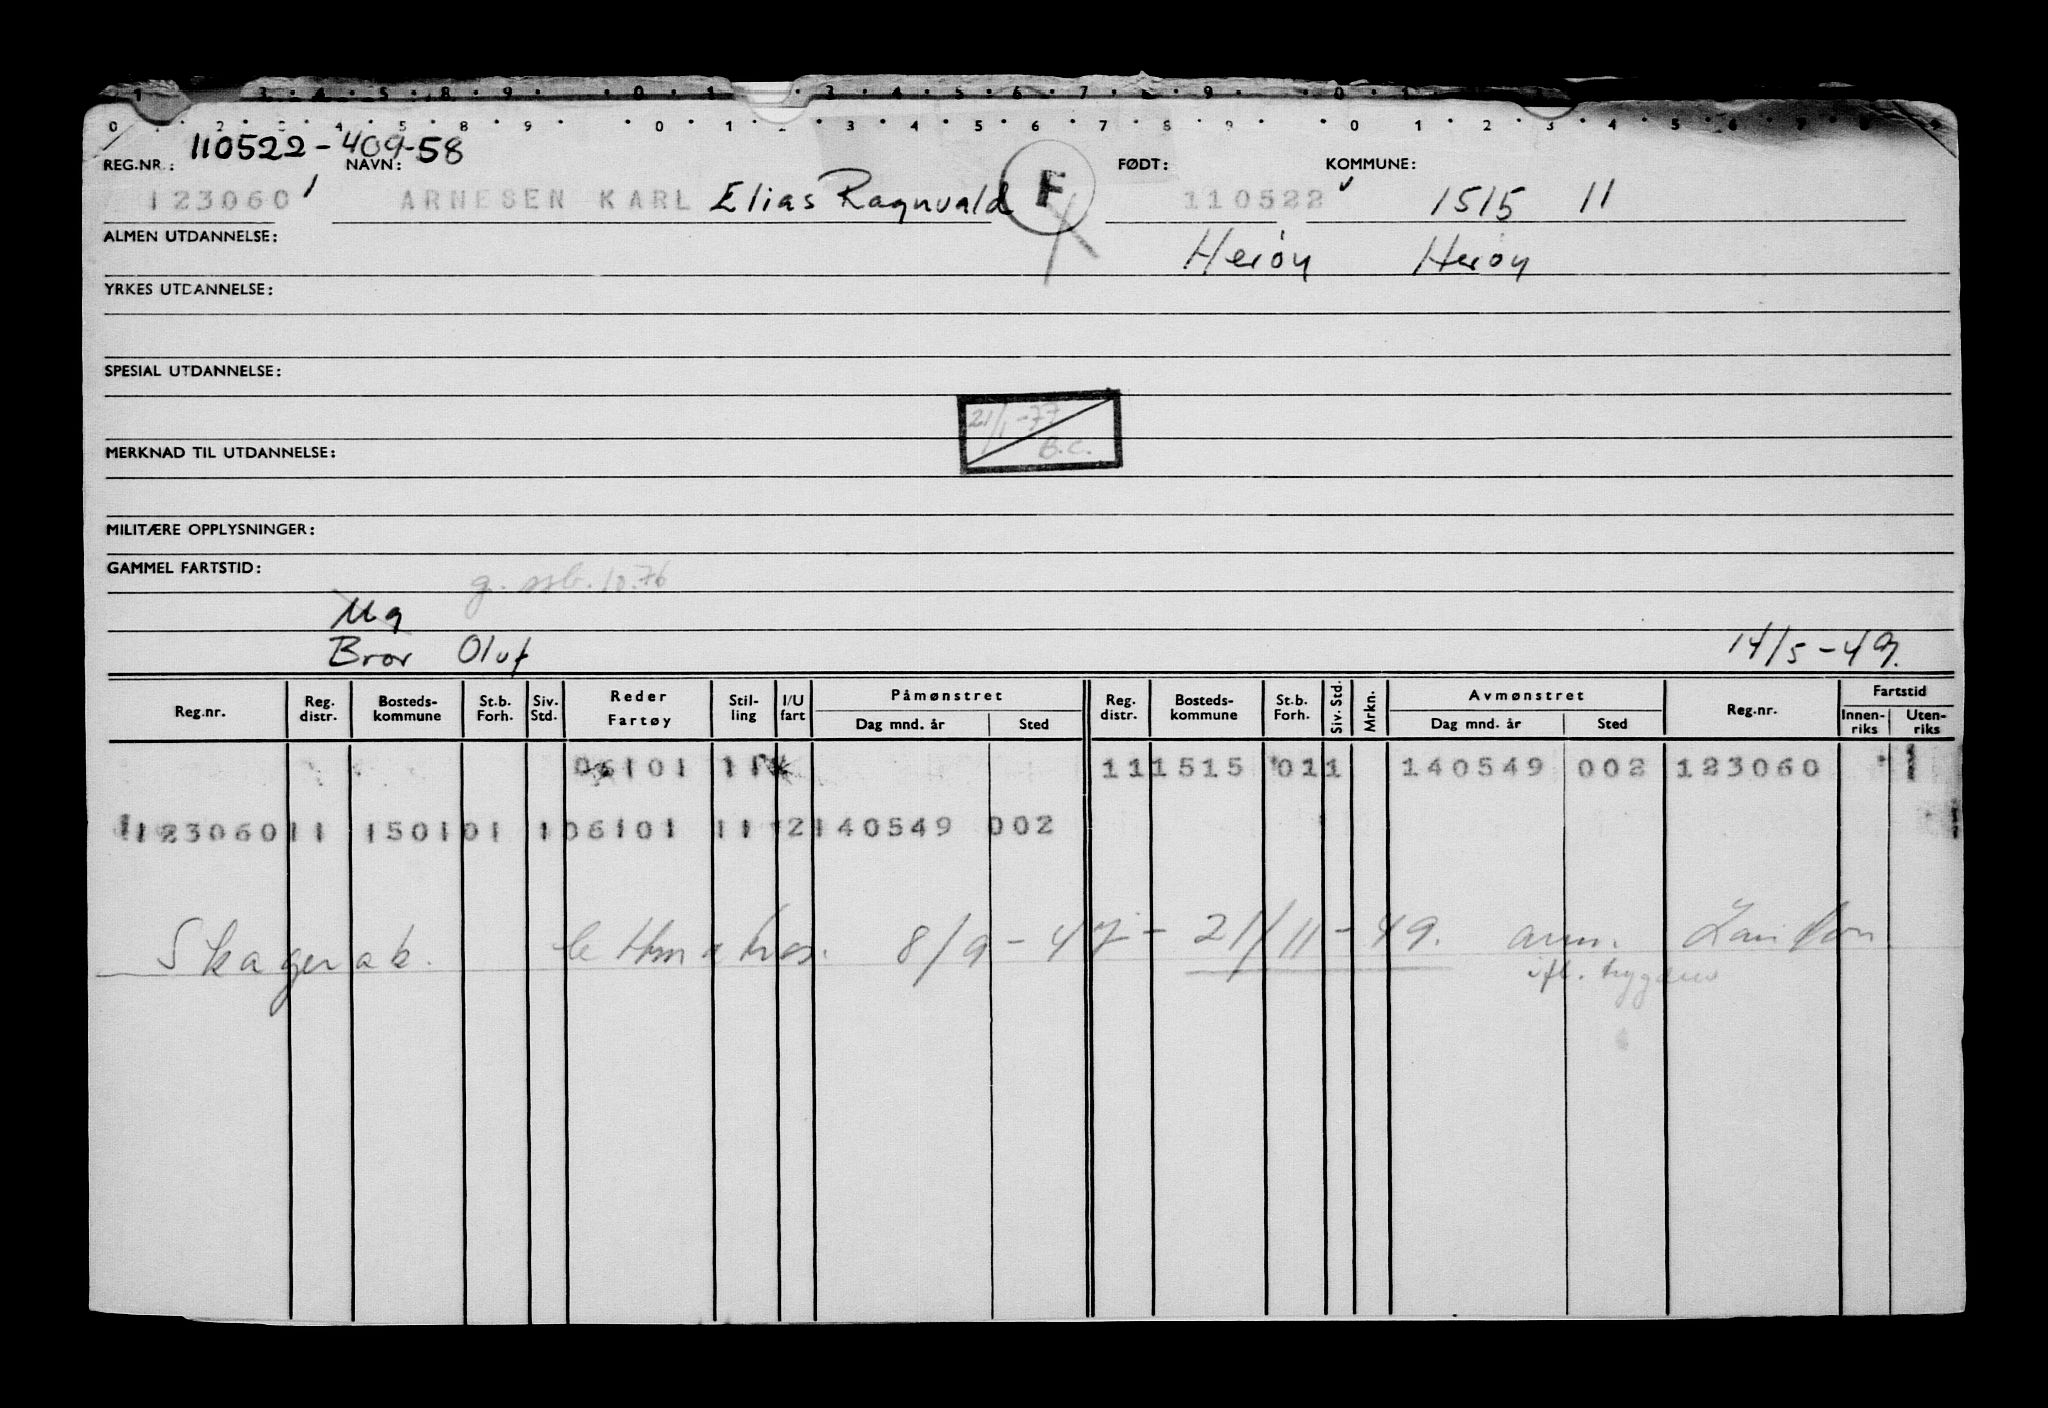 110522-409-58
REG.NR.: NAVN: FØDT: KOMMUNE:
123060 ARNESEN KARL Elias Ragnvald F 110522 1515 11
ALMEN UTDANNELSE: Herøy Herøy
YRKES UTDANNELSE:
SPESIAL UTDANNELSE:
21/1-77
B.C.
MERKNAD TIL UTDANNELSE:
MILITÆRE OPPLYSNINGER:
GAMMEL FARTSTID:
10.76
Ug
Bror Oluf 14/5-49.
Reg.nr. Reg. distr. Bosteds-kommune St.b. Forh. Siv. Std. Reder Fartøy Stil-ling I/U fart Påmønstret Dag mnd. år Sted Reg. distr. Bosteds-kommune St.b. Forh. Siv. Std. Mrkn. Avmønstret Dag mnd. år Sted Reg.nr. Fartstid Innen-riks Uten-riks
06101 11 111515 011 140549 002 123060 1
12306011 150101 106101 11 2140549 002
Skagerak. 8/9-47- 21/11-49.